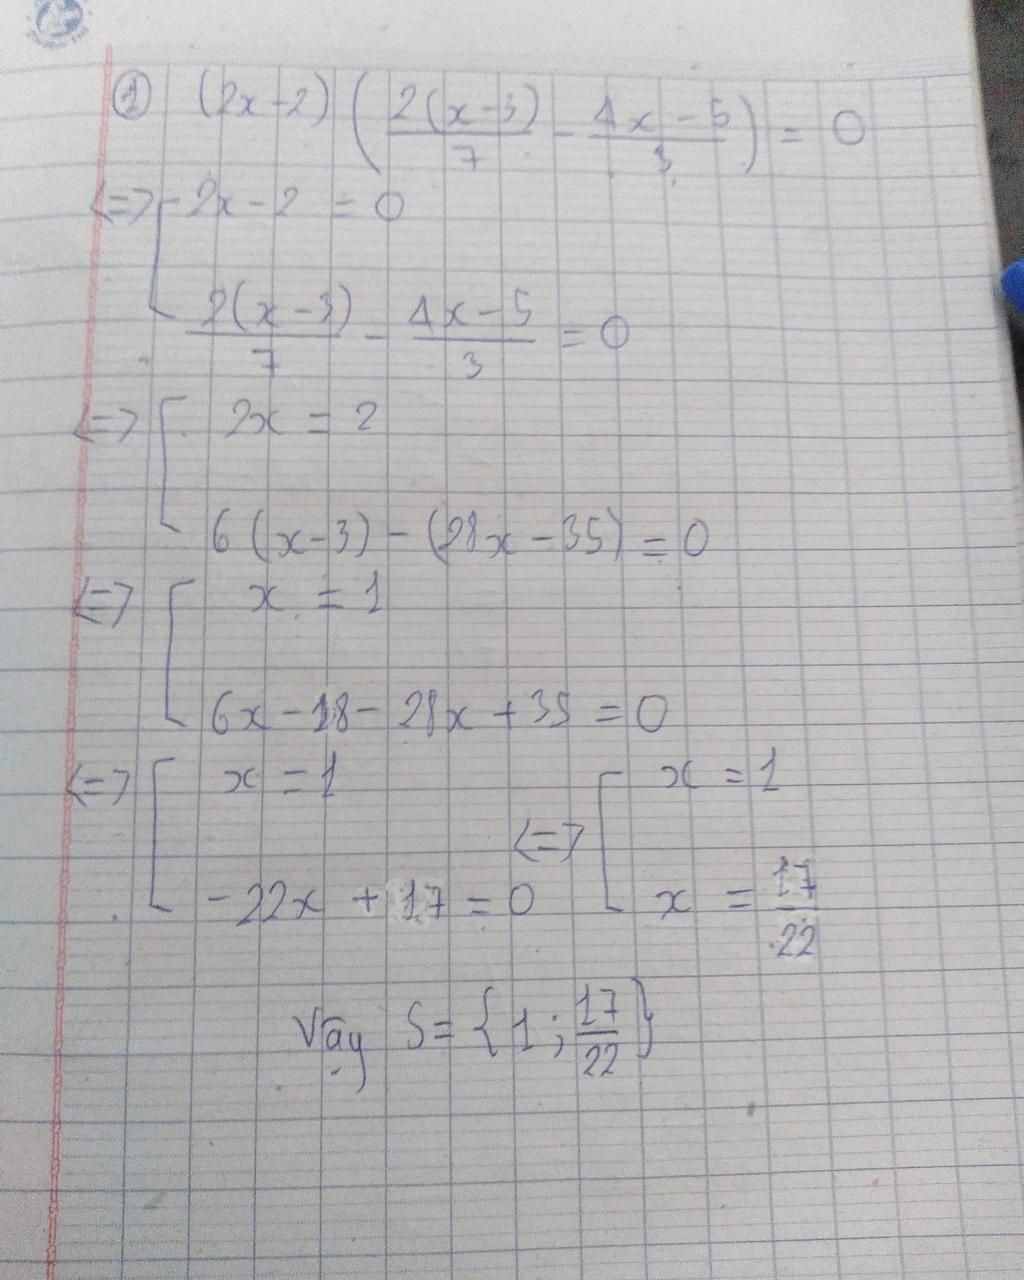 ① (2x-2) ( 2(x-3)/7 - 4x-5/3 ) = 0
<=> [ 2x-2 = 0
2(x-3)/7 - 4x-5/3 = 0
<=> [ 2x = 2
6(x-3) - (28x-35) = 0
<=> [ x = 1
6x-18-28x+35 = 0
<=> [ x = 1 <=> [ x = 1
-22x + 17 = 0 x = 17/22
Vậy S = { 1 ; 17/22 }